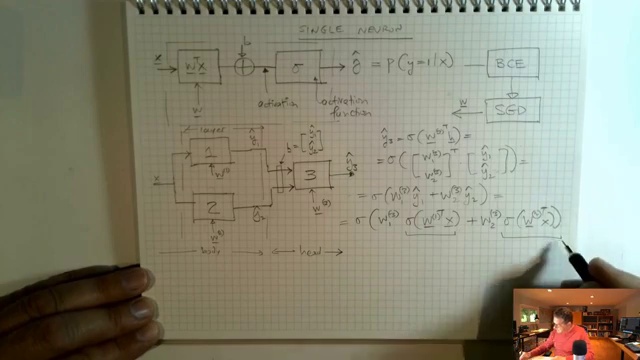 SINGLE NEURON
x wᵀx + b σ ŷ = p(y=1|x) BCE
w activation activation function w SGD
layer
x 1 w⁽¹⁾ ŷ₁ h = [ŷ₁ ŷ₂] 3 w⁽³⁾ ŷ₃
2 w⁽²⁾ ŷ₂
body head
ŷ₃ = σ(w⁽³⁾ᵀ h) =
= σ([w₁⁽³⁾ w₂⁽³⁾]ᵀ [ŷ₁ ŷ₂]) =
= σ(w₁⁽³⁾ ŷ₁ + w₂⁽³⁾ ŷ₂) =
= σ(w₁⁽³⁾ σ(w⁽¹⁾ᵀ x) + w₂⁽³⁾ σ(w⁽²⁾ᵀ x))